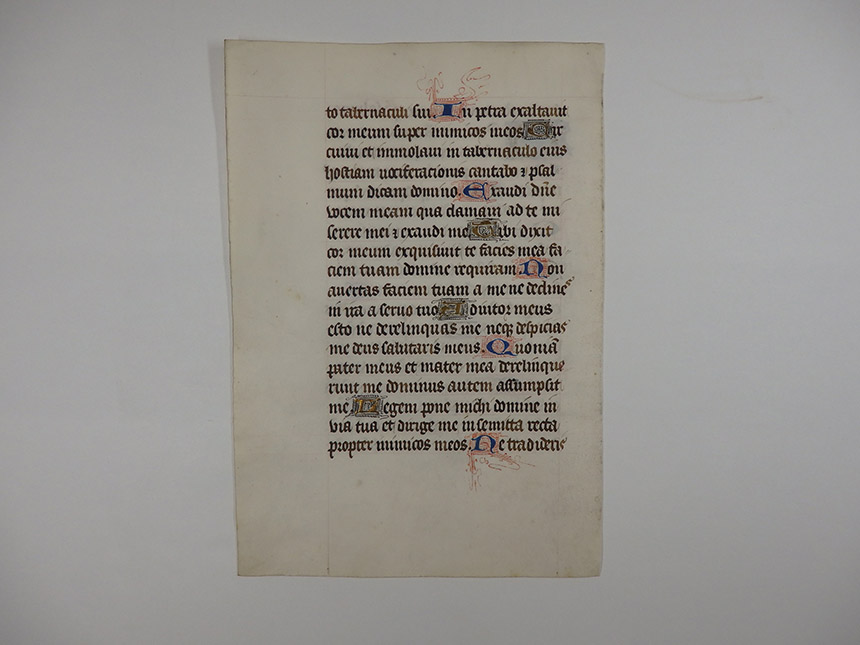 to tabernaculi sui. In petra exaltavit
cor meum super inimicos meos Cir
cuivi et immolavi in tabernaculo eius
hostiam vociferacionis cantabo ⁊ psal
mum dicam domino. Exaudi dn̄e
vocem meam qua clamavi ad te mi
serere mei ⁊ exaudi me Tibi dixit
cor meum exquisivit te facies mea fa
ciem tuam domine requiram. Non
avertas faciem tuam a me ne declines
in ira a servo tuo Adiutor meus
esto ne derelinquas me neqꝫ despicias
me deus salutaris meus. Quoniā
pater meus et mater mea derelinque
runt me dominus autem assumpsit
me Legem pone michi domine in
via tua et dirige me in semitta recta
propter inimicos meos. Ne tradideris